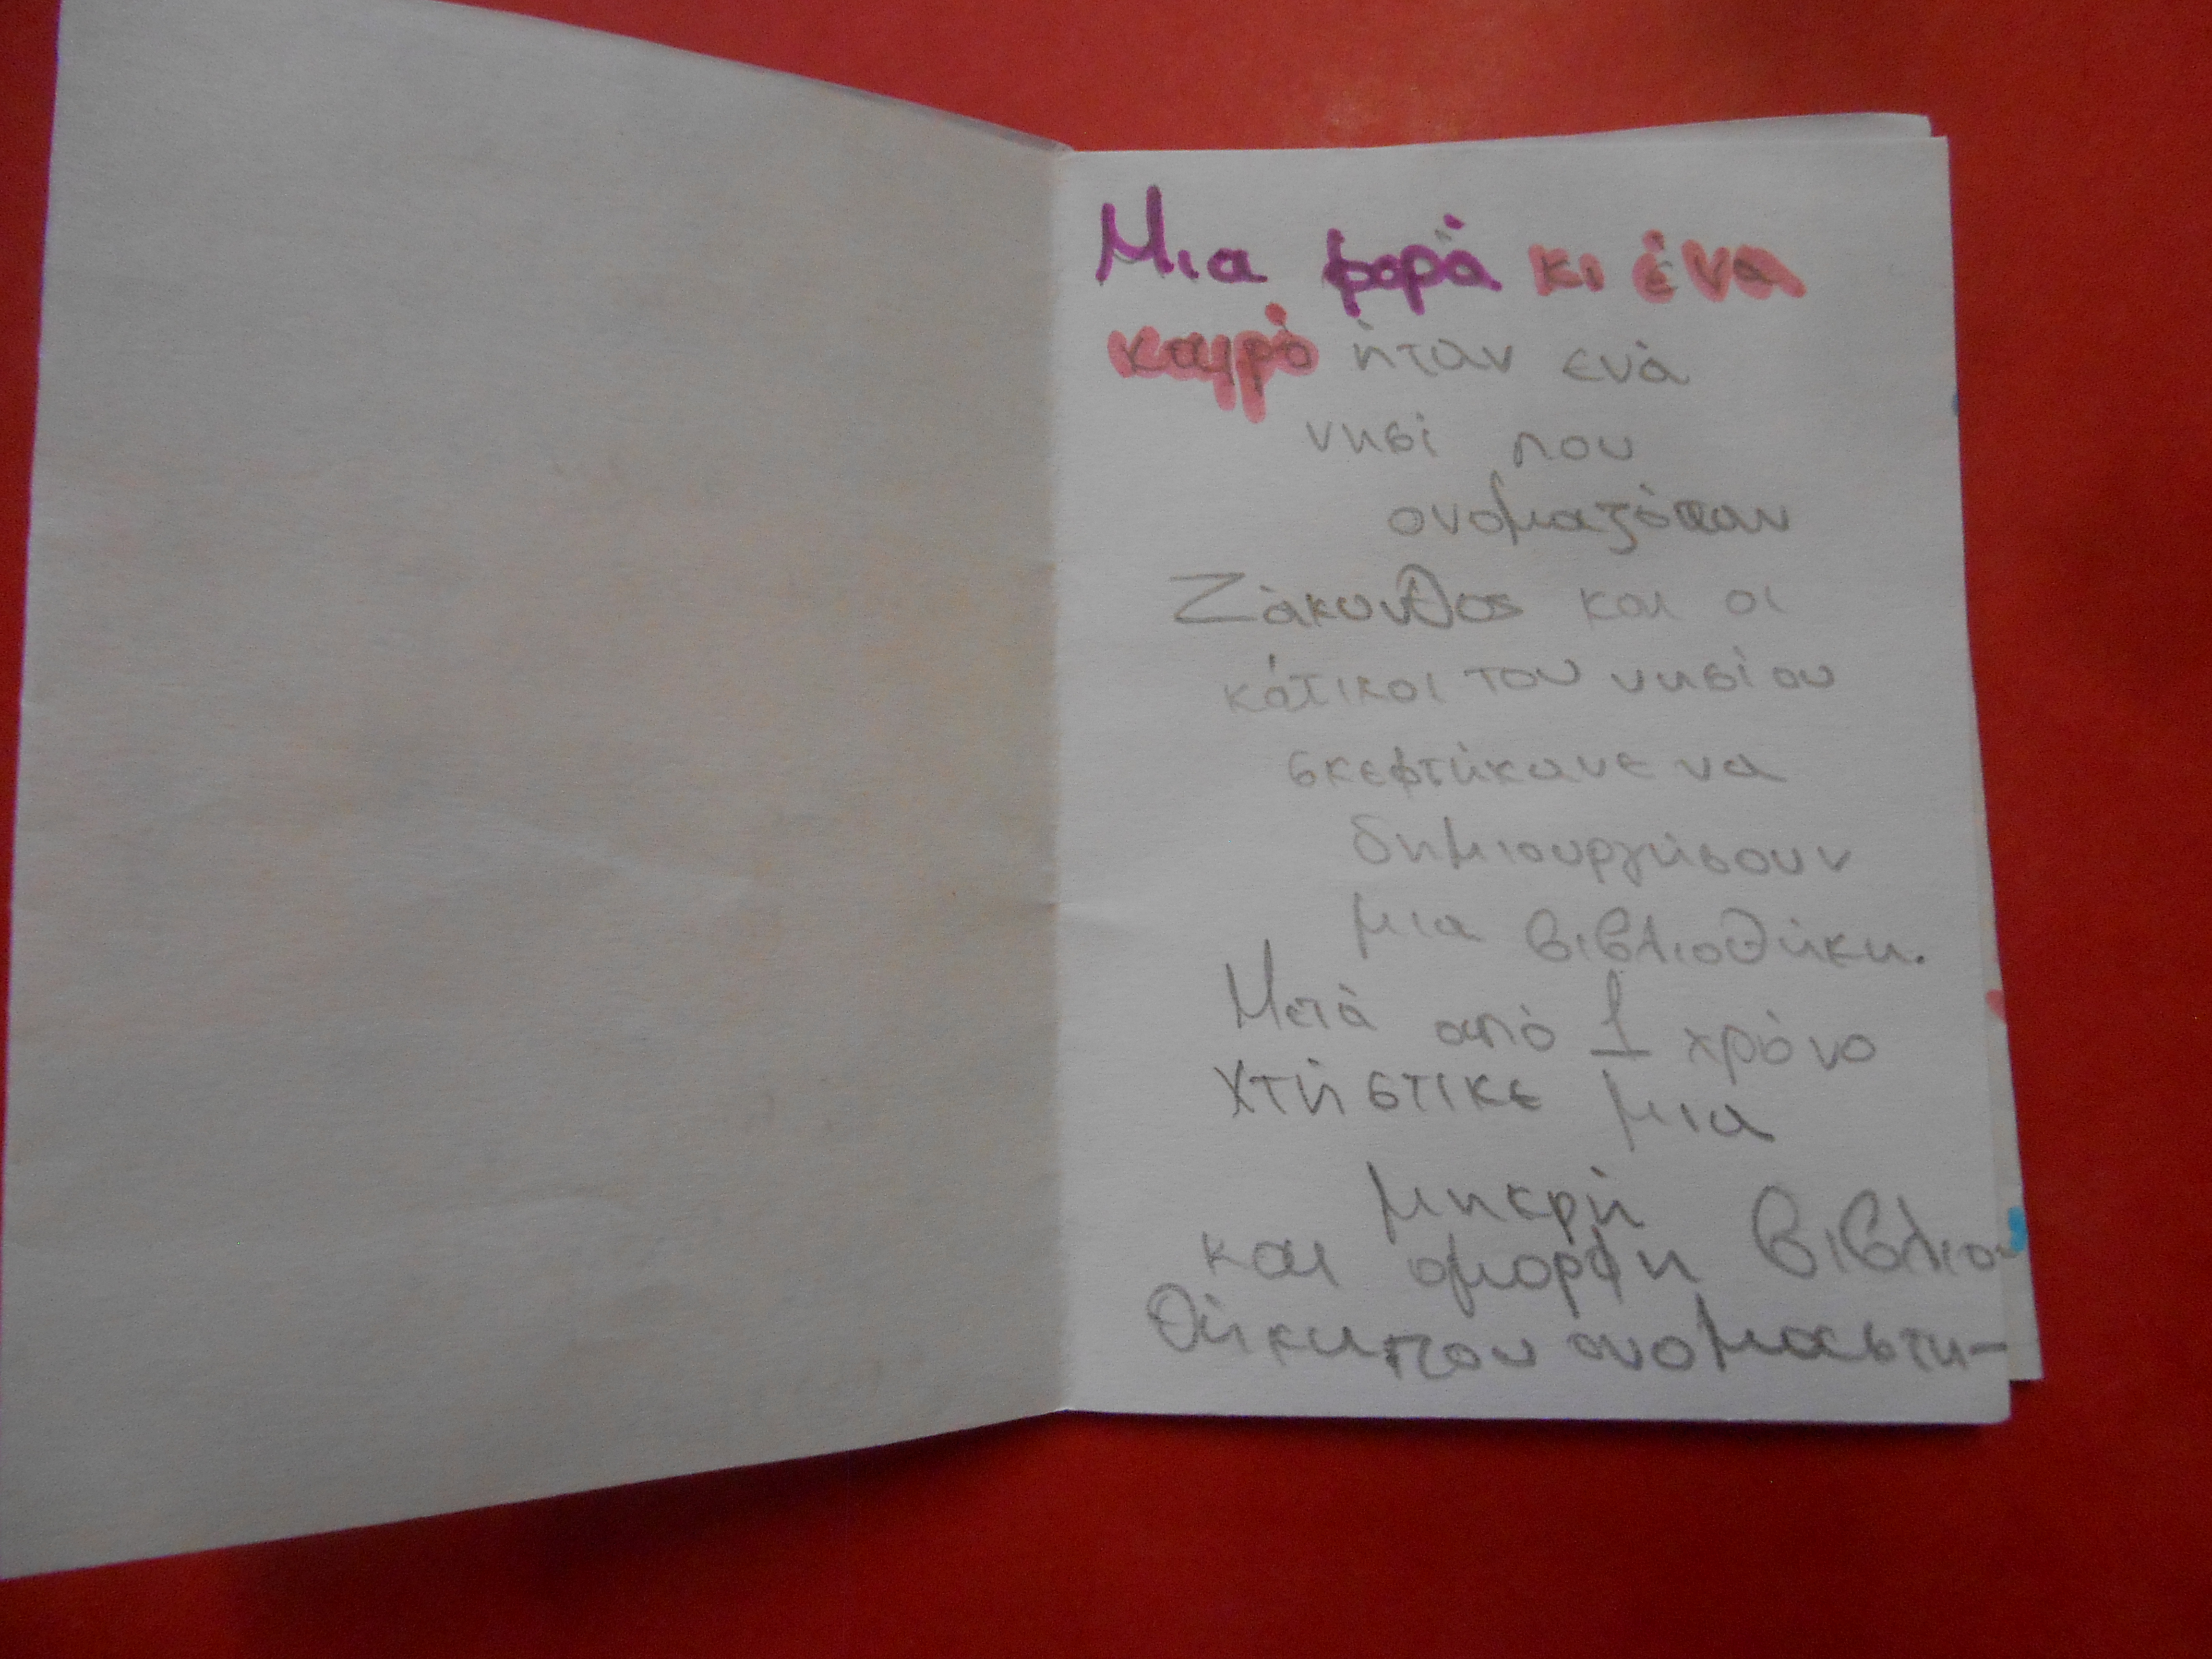 Μια φορά κι ένα
καιρό ήταν ενά
νησί που
ονομαζόταν
Ζάκυνθος και οι
κάτικοι του νησίου
σκεφτήκανε να
δημιουργήσουν
μια βιβλιοθήκη.
Μετά από 1 χρόνο
χτήστικε μια
μηκρή
και ομορφη βιβλιο
θήκη που ονομαστη-